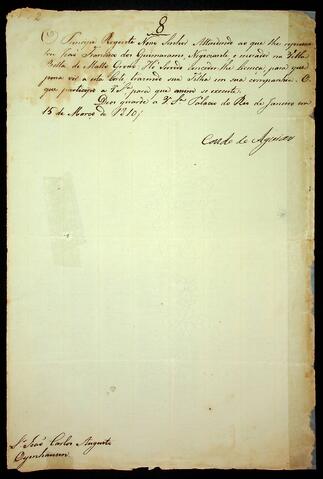 8
O Principe Regente Nosso Senhor Attendendo ao que lhe represen
tou João Francisco dos Guimaraens, Negociante e morador na Villa
Bella de Matto Grosso: Ha servido conceder-lhe licença para que
possa vir a esta Corte, trazendo sua Filha em sua companhia. O
que participo a V. Sª. para que assim se execute.
Deos guarde a V. Sª. Palacio do Rio de Janeiro em
15 de Março de 1810/
Conde de Aguiar
Sr. João Carlos Augusto
Oeynhausen